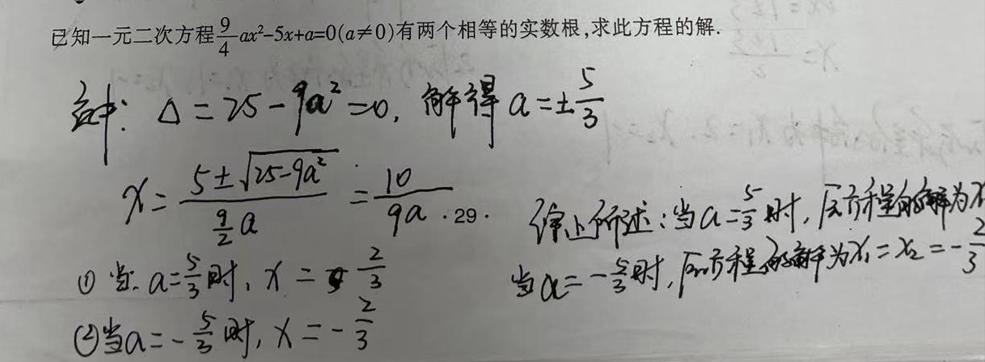 已知一元二次方程9/4ax²-5x+a=0(a≠0)有两个相等的实数根,求此方程的解.
解: Δ=25-9a²=0, 解得 a=±5/3
x=(5±√(25-9a²))/(9/2 a)=10/9a
·29·
①当:a=5/3时, x=2/3
②当a=-5/3时, x=-2/3
综上所述:当a=5/3时, 原方程的解为x
当a=-5/3时, 原方程的解为x₁=x₂=-2/3